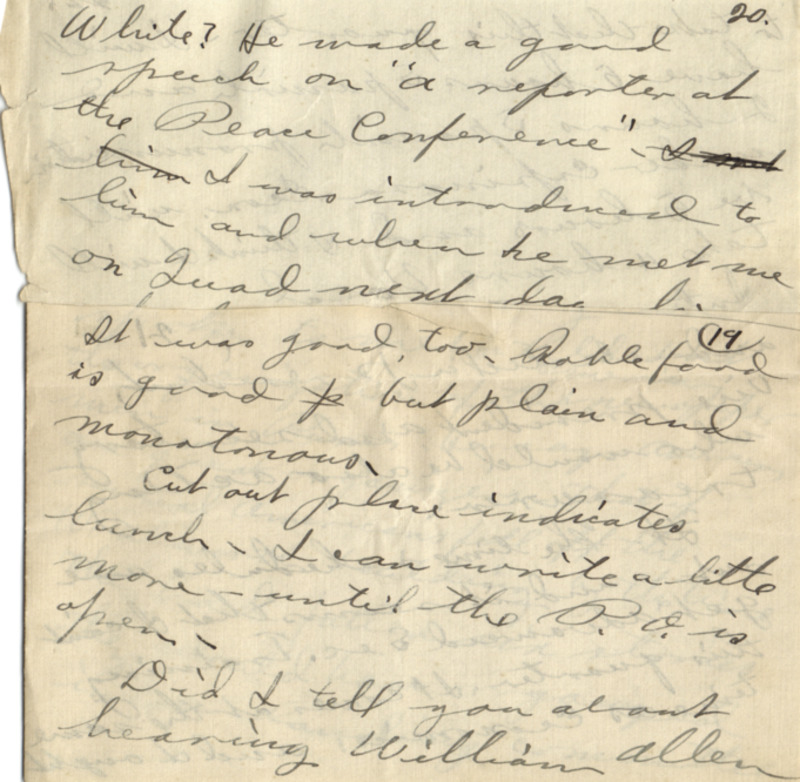 20.
White? He made a good
speech on "a reporter at
the Peace Conference" - I met
him I was introduced to
him and when he met me
on Quad next
19
It was good, too. Roble food
is good but plain and
monotonous.
Cut out place indicates
lunch - I can write a little
more - until the P.O. is
open -
Did I tell you about
hearing William Allen